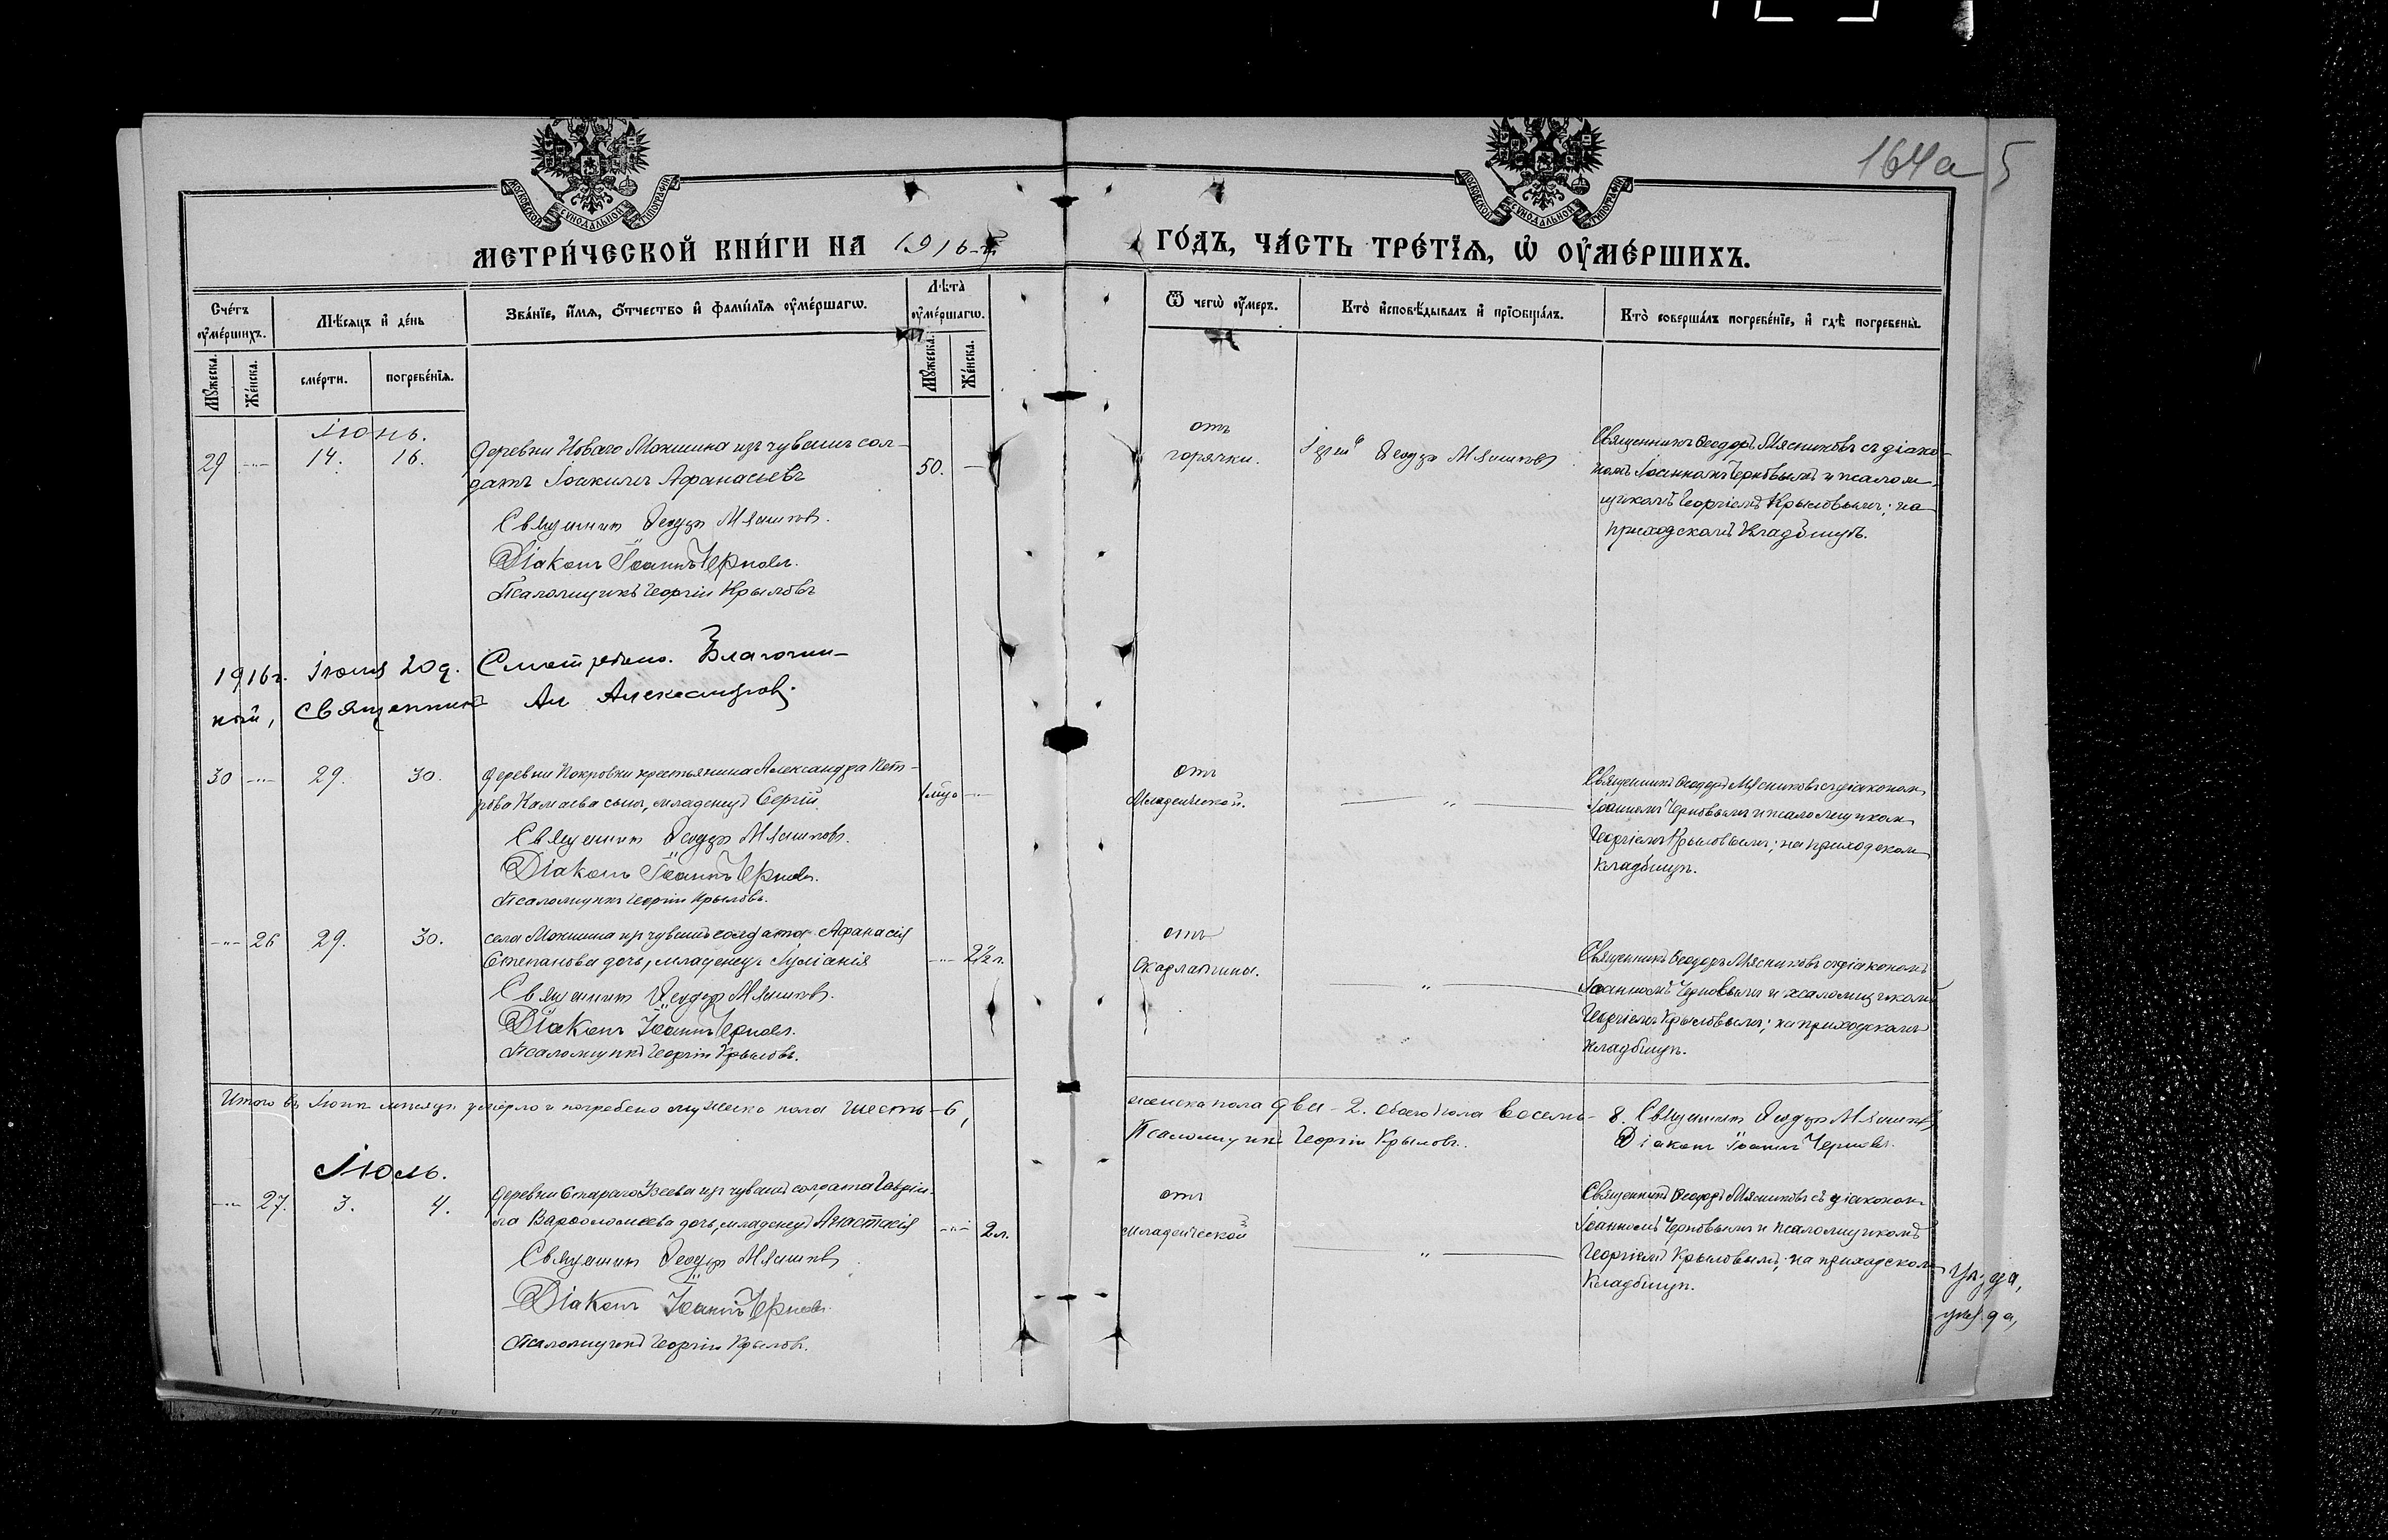 164а 5
МОСКОВСКОЙ СѴНОДАЛЬНОЙ ТИПОГРАФІИ
МОСКОВСКОЙ СѴНОДАЛЬНОЙ ТИПОГРАФІИ
МЕТРИ́ЧЕСКОЙ КНИ́ГИ НА 1916-й
ГО́ДЪ, ЧА́СТЬ ТРЕ́ТЇѦ, Ѡ ОУ҆МЕ́РШИХЪ.
Сче́тъ оу҆ме́ршихъ.
Мꙋ́жеска.
Же́нска.
Мѣ́сяцъ и҆ де́нь
сме́рти.
погребе́нїѧ.
Зва́нїе, и҆́мѧ, ѻ҆́тчество и҆ фами́лїѧ оу҆ме́ршагѡ.
Лѣта̀ оу҆ме́ршагѡ.
Мꙋ́жеска.
Же́нска.
Ѿ чегѡ̀ оу҆́меръ.
Кто̀ и҆сповѣ́дывалъ и҆ прїѻбща́лъ.
Кто̀ соверша́лъ погребе́нїе, и҆ гдѣ̀ погребены̀.
Іюнь.
29 -"- 14. 16. Деревни Новаго Мокшина изъ чувашъ сол-
датъ Іоакимъ Афанасьевъ 50. -
Священникъ Ѳеодоръ Мясниковъ.
Діаконъ Іоаннъ Черновъ.
Псаломщикъ Георгій Крыловъ
отъ
горячки.
Іерей Ѳеодоръ Мясниковъ
Священникъ Ѳеодоръ Мясниковъ съ діако-
номъ Іоанномъ Черновымъ и псалом-
щикомъ Георгіемъ Крыловымъ; на
приходскомъ кладбищѣ.
1916 г. Іюня 20 д. Смотрѣно. Благочин-
ный, священникъ Ал Александровъ.
30 -"- 29. 30. Деревни Покровки крестьянина Александра Пет-
рова Камаева сынъ, младенецъ Сергій 1 -"-
Священникъ Ѳеодоръ Мясниковъ.
Діаконъ Іоаннъ Черновъ.
Псаломщикъ Георгій Крыловъ.
отъ
Младенческой.
- " -
Священникъ Ѳеодоръ Мясниковъ съ діакономъ
Іоанномъ Черновымъ и псаломщикомъ
Георгіемъ Крыловымъ; на приходскомъ
кладбищѣ.
-"- 26 29. 30. села Мокшина изъ чувашъ солдата Афанасія
Степанова дочь, младенецъ Іуліанія -"- 2½ л.
Священникъ Ѳеодоръ Мясниковъ.
Діаконъ Іоаннъ Черновъ.
Псаломщикъ Георгій Крыловъ.
отъ
Скарлатины.
- " -
Священникъ Ѳеодоръ Мясниковъ съ діакономъ
Іоанномъ Черновымъ и псаломщикомъ
Георгіемъ Крыловымъ; на приходскомъ
кладбищѣ.
Итого въ Іюнѣ мѣсяцѣ умерло и погребено мужеска пола шесть - 6,
женска пола два - 2. обоего пола восемь - 8. Священникъ Ѳеодоръ Мясниковъ
Псаломщикъ Георгій Крыловъ. Діаконъ Іоаннъ Черновъ.
Іюль.
-"- 27. 3. 4. Деревни Стараго Узеева изъ чувашъ солдата Гавріи-
ла Варѳоломеева дочь, младенецъ Анастасія -"- 2 л.
Священникъ Ѳеодоръ Мясниковъ
Діаконъ Іоаннъ Черновъ.
Псаломщикъ Георгій Крыловъ.
отъ
младенческой
- " -
Священникъ Ѳеодоръ Мясниковъ съ діакономъ
Іоанномъ Черновымъ и псаломщикомъ
Георгіемъ Крыловымъ; на приходскомъ
кладбищѣ.
уѣзда,
уѣзда,